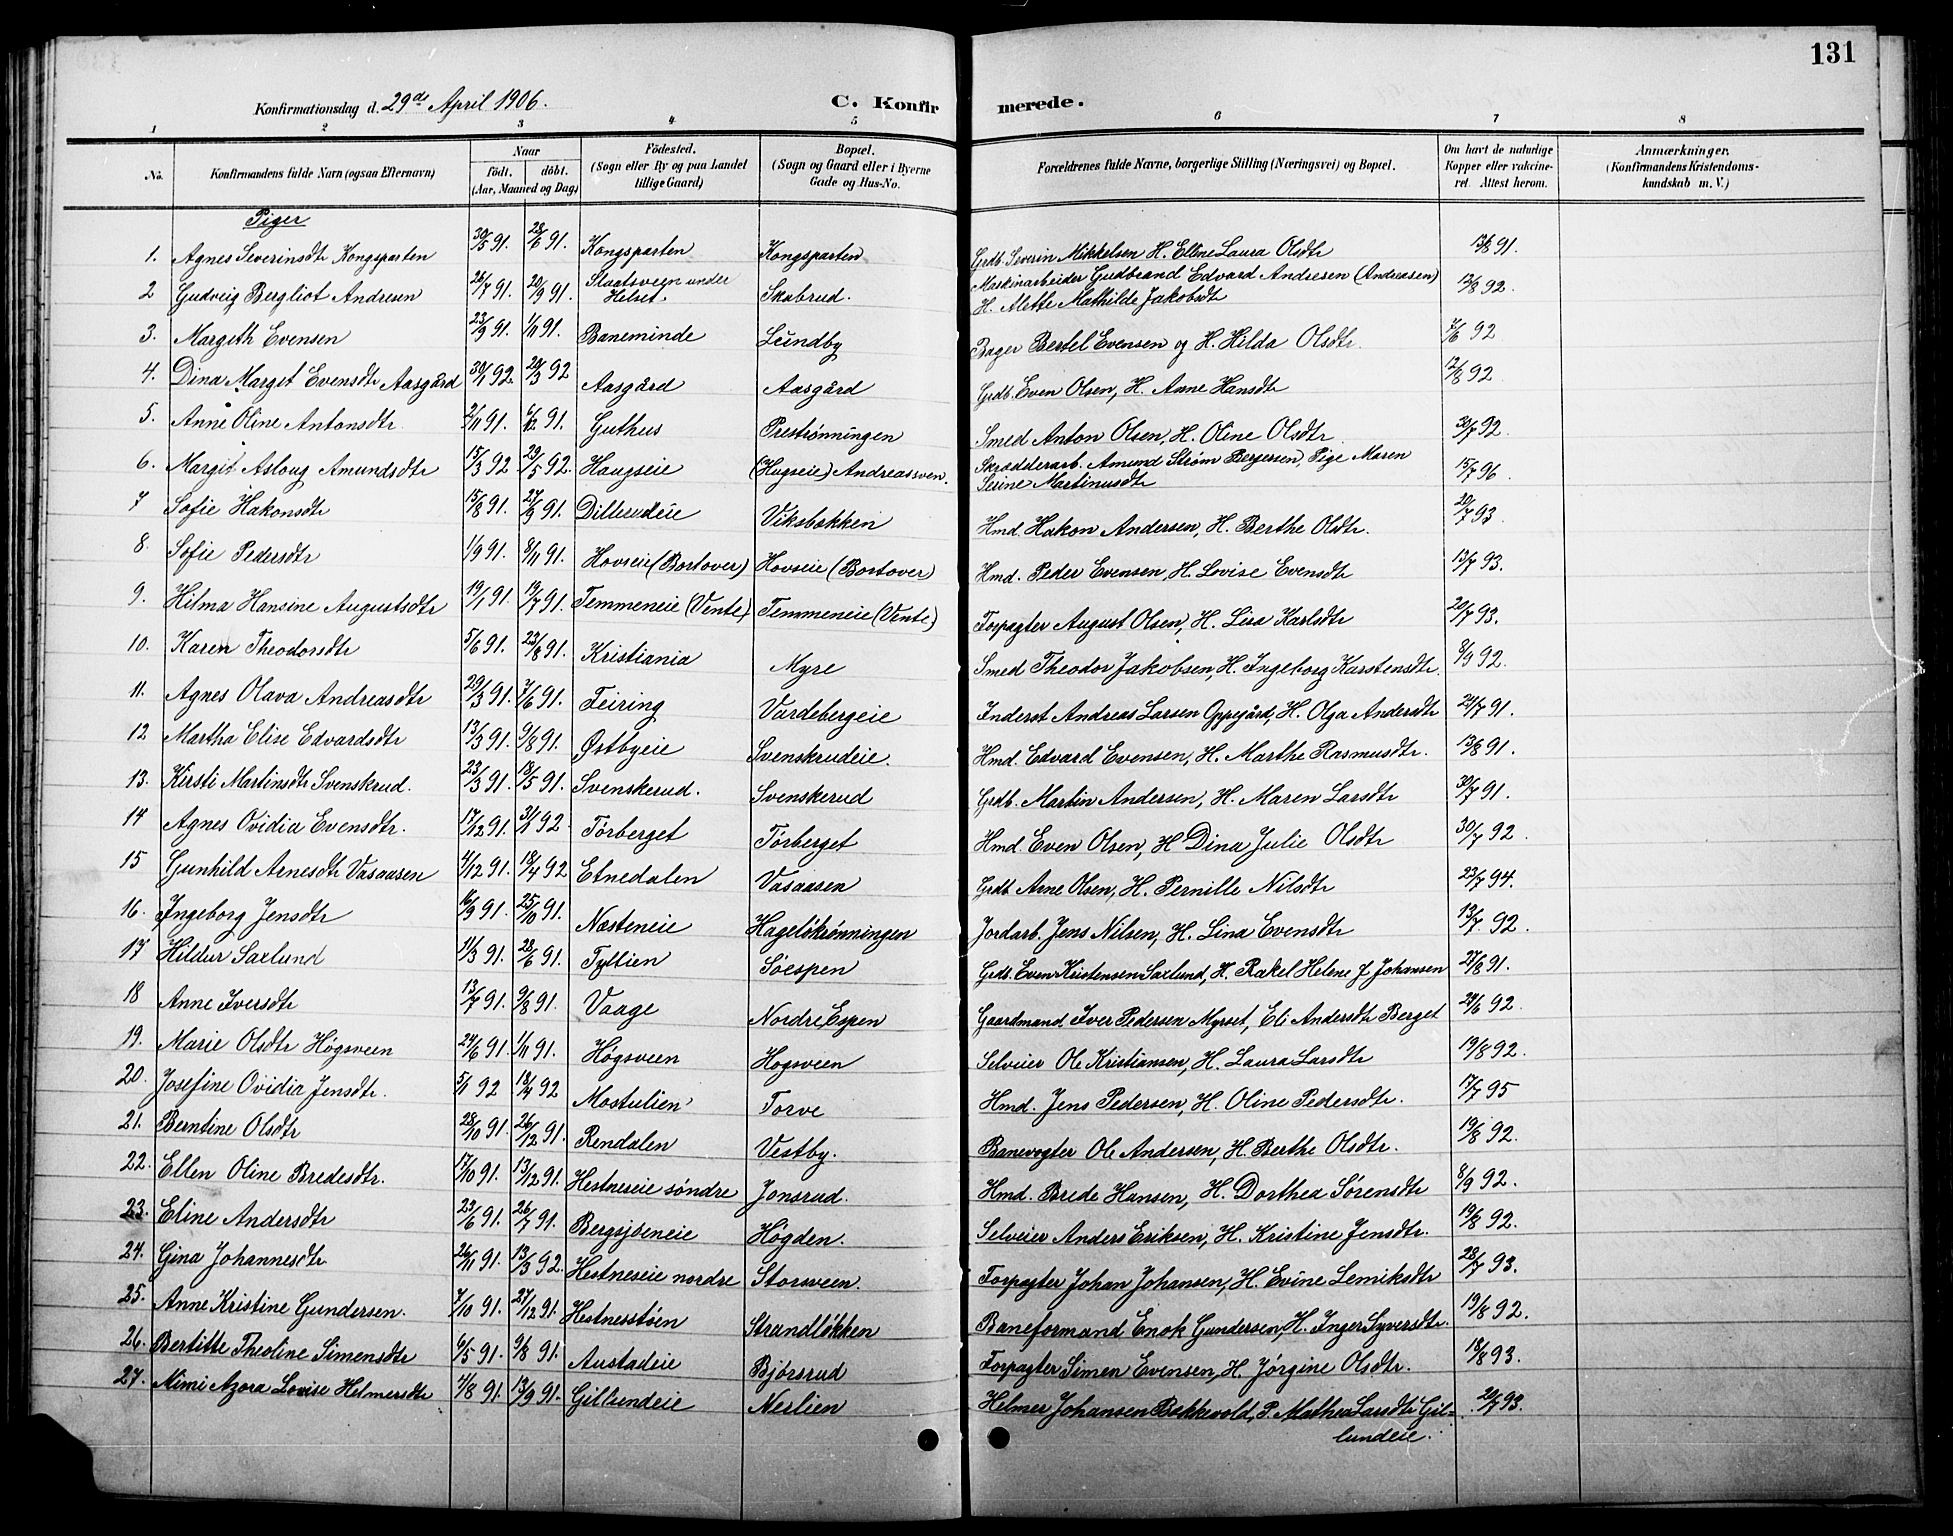 131
Konfirmationsdag d. 29de April 1906. C. Konfirmerede.
1 2 3 4 5 6 7 8
No. Konfirmandens fulde Navn (ogsaa Efternavn) Naar født. døbt. (Aar, Maaned og Dag) Fødested. (Sogn eller By og paa Landet tillige Gaard) Bopæl. (Sogn og Gaard eller i Byerne Gade og Hus-No. Forældrenes fulde Navne, borgerlige Stilling (Næringsvei) og Bopæl. Om havt de naturlige Kopper eller vakcineret. Attest herom. Anmærkninger. (Konfirmandens Kristendomskundskab m. V.)
Piger
1. Agnes Severinsdtr Kongsparten 30/5 91. 28/6 91. Kongsparten Kongsparten Grdb. Severin Mikkelsen H. Ellene Laura Olsdtr 13/8 91.
2 Gudveig Bergliot Andresen 26/7 91. 20/9 91. Staatsveen under Helset. Skabrud. Maskinarbeider Gudbrand Edvard Andresen (Andreasen) H. Alette Mathilde Jakobsdtr 12/8 92.
3. Margith Evensen 23/9 91. 1/11 91. Baneminde Lundby Bager Bertel Evensen og H. Hilda Olsdtr. 7/6 92
4. Dina Marget Evensdtr Aasgård 30/1 92. 20/3 92 Aasgård Aasgård Grdb. Even Olsen, H. Anne Hansdtr 12/8 92
5. Anne Oline Antonsdtr. 2/11 91. 6/12 91. Guthus Prestrønningen Smed Anton Olsen, H. Oline Olsdtr. 30/7 92.
6. Margit Aslaug Amundsdtr 15/3 92 29/5 92. Haugseie (Hugseie) Andreassven. Skrædderarb. Amund Strøm Bergersen, Pige Maren Serine Martinusdtr 15/7 96.
7 Sofie Hakonsdtr 15/8 91. 27/9 91. Dillerudeie Viksbakken Hmd. Hakon Andersen, H. Berthe Olsdtr. 20/7 93
8. Sofie Pedersdtr 1/9 91. 8/11 91. Hovseie (Bortover) Hovseie (Bortover) Hmd. Peder Evensen, H. Lovise Evensdtr 13/7 93.
9. Hilma Hansine Augustsdtr 19/1 91. 19/7 91. Temmeneie (Vente) Temmeneie (Vente) Forpagter August Olsen, H. Lisa Karlsdtr 20/7 93.
10. Karen Theodorsdtr 5/6 91. 23/8 91. Kristiania Myre Smed Theodor Jakobsen, H. Ingeborg Karstensdtr. 8/9 92.
11. Agnes Olava Andreasdtr 29/3 91. 7/6 91. Feiring Vardebergeie Inderst Andreas Larsen Oppegård, H. Olga Andersdtr 24/7 91.
12 Martha Elise Edvardsdtr 13/3 91. 9/8 91. Østbyeie Svenskrudeie. Hmd. Edvard Evensen, H. Marthe Rasmusdtr. 13/8 91.
13. Kirsti Martinsdtr Svenskrud. 23/3 91. 18/5 91. Svenskerud. Svenskerud Grdb. Martin Andersen, H. Maren Larsdtr 30/7 91.
14 Agnes Ovidia Evensdtr. 17/12 91. 31/1 92 Tørberget Tørberget Hmd. Even Olsen, H Dina Julie Olsdtr 30/7 92.
15 Gunhild Arnesdtr Vasaasen 4/12 91. 18/4 92 Etnedalen Vasaasen Grdb Arne Olsen, H. Pernille Nilsdtr 23/7 94.
16. Ingeborg Jensdtr 16/9 91. 25/10 91. Næsteneie Hageløkrønningen Jordarb. Jens Nilsen, H. Lina Evensdtr 13/7. 92.
17 Hildur Saxlund 11/3 91. 28/6 91. Tyllien Søespen Grdb. Even Kristensen Saxlund, H. Rakel Helene J. Johansen 27/8 91.
18 Anne Iversdtr 13/7 91. 9/8 91. Vaage Nordre Espen Gaardmand Iver Pedersen Myrset, Eli Andersdtr Berget 29/6 92.
19. Marie Olsdtr Høgsveen 24/6 91. 1/11 91. Høgsveen Høgsveen Selveier Ole Kristiansen, H. Laura Larsdtr 19/8 92.
20. Josefine Ovidia Jensdtr. 5/1 92 18/4 92 Mostulien Torve Hmd. Jens Pedersen, H. Oline Pedersdtr. 17/7 95
21. Berntine Olsdtr 28/10 91. 26/12 91. Rendalen Vestby. Banevogter Ole Andersen, H. Berthe Olsdtr. 19/8 92.
22. Ellen Oline Bredesdtr. 17/10 91. 13/12 91. Hestneseie søndre Jonsrud. Hmd. Brede Hansen, H. Dorthea Sørensdtr 8/9 92.
23. Eline Andersdtr 23/6 91. 26/7 91. Bergsjøeneie Høgden. Selveier Anders Eriksen, H. Kristine Jensdtr. 19/8 92.
24. Gina Johannesdtr 26/11 91. 13/3 92. Hestneseie nordre Storsveen. Forpagter Johan Johansen, H. Evine Lemiksdtr 28/7 93.
25. Anne Kristine Gundersen. 7/10 91. 27/12 91. Hestnesstøen Strandløkken Baneformand Enok Gundersen, H. Inger Syversdtr. 19/8 92.
26. Bertitte Theoline Simensdtr 6/5 91. 9/8 91. Austadeie Bjørsrud Forpagter Simen Evensen, H. Jørgine Olsdtr. 18/8 93.
27. Mimi Azora Lovise Helmersdtr 4/8 91. 13/9 91. Gillundeie Nerlien Helmer Johansen Bakkevold, P. Mathea Larsdtr Gillundeie. 20/7 93.